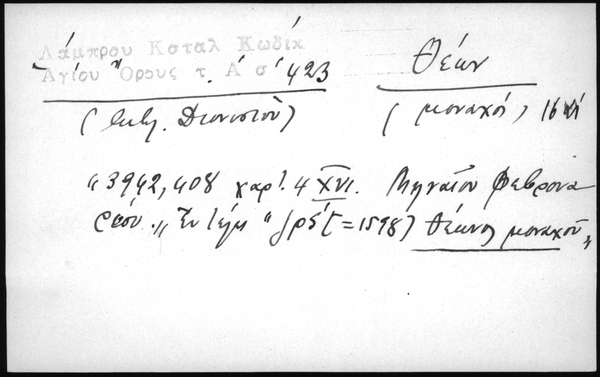 Λάμπρου Καταλ Κωδικ
Ἁγίου Ὄρους τ. Α΄ σ΄ 423
Θέων
Διονυσίου)
(μοναχός) 16
"3942,408 χαρτ. 4 XVI. Μηναῖον Φεβρουα
ρίου. "Ἐν τέλει" ͵ζρϛ΄ (=1598) Θέωνος μοναχοῦ"